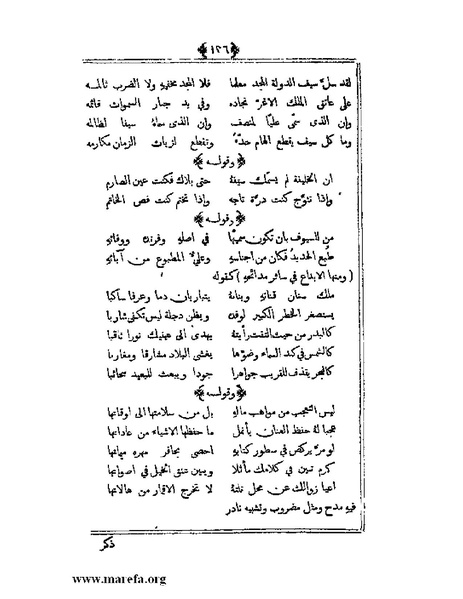 ﴿١٢٦﴾
لقد سلّ سيف الدولة المجد معلما فلا المجد مخفيه ولا الضرب ثالمه
على عاتق الملك الاغرّ نجاده وفي يد جبار السموات قائمه
وإن الذي سمّى عليًا لمنصف وإن الذي سماهُ سيفا لظالمه
وما كل سيف يقطع الهام حدّهُ وتقطع لزبات الزمان مكارمه
﴿وقوله﴾
ان الخليفة لم يسمّك سيفهُ حتى بلاك فكنت عين الصارم
وإذا تتوّج كنت درّة تاجه وإذا تختم كنت فص الخاتم
﴿وقوله﴾
من للسيوف بان تكون سميّها في اصله وفرنده ووفائه
طُبع الحديد فكان من اجناسه وعليٌّ المطبوع من آبائه
(ومنها الابداع في سائر مدائحه) كقوله
ملك سنان قناته وبنانهُ يتباريان دما وعرفا ساكبا
يستصغر الخطر الكبير لوفده ويظن دجلة ليس تكفي شاربا
كالبدر من حيث التفت رأيتهُ يهدي الى عينيك نورا ثاقبا
كالشمس في كبد السماء وضوّها يغشى البلاد مشارقا ومغاربا
كالبحر يقذف للقريب جواهرا جودا ويبعث للبعيد سحائبا
﴿وقوله﴾
ليس التعجب من مواهب ماله بل من سلامتها الى اوقاتها
عجبا لهُ حفظ العنان بأنمل ما حفظها الاشياء من عاداتها
لو مرّ يركض في سطور كتابه احصى بحافر مهره ميماتها
كرم تبين في كلامك ماثلا ويبين عتق الخيل في اصواتها
اعيا زوالك عن محل نلتهُ لا تخرج الاقمار من هالاتها
فيه مدح ومثل مضروب وتشبيه نادر
ذكر
www.marefa.org